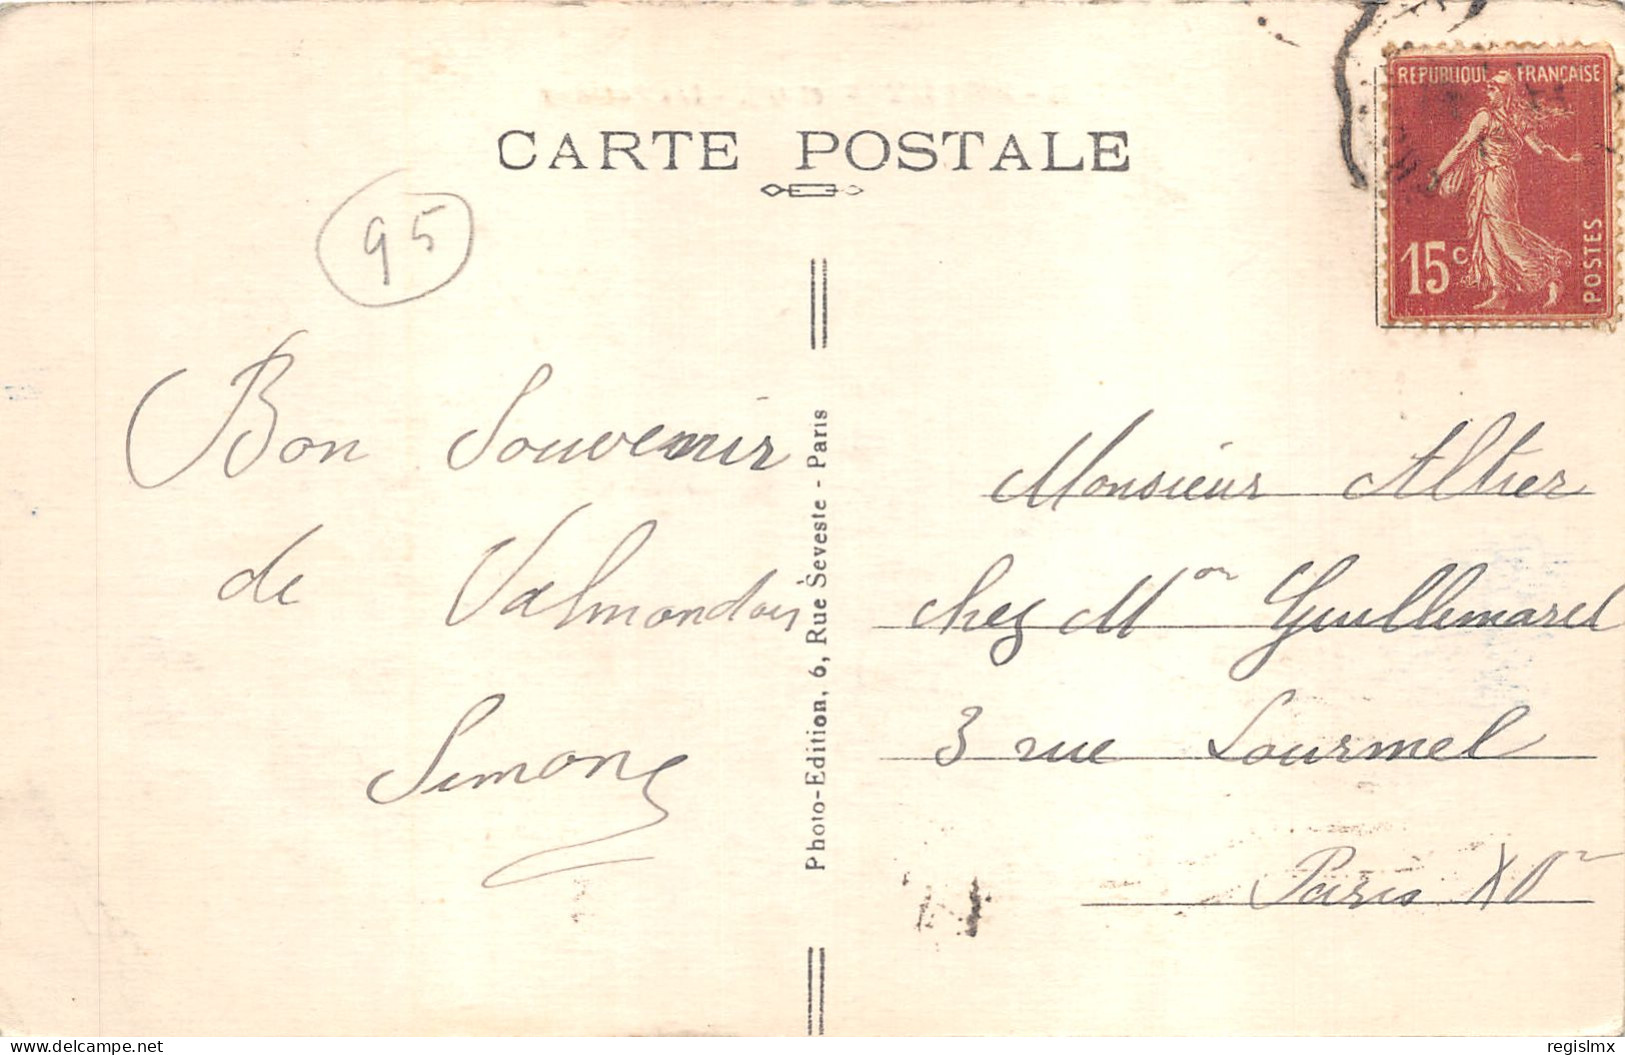 CARTE POSTALE
RÉPUBLIQUE FRANÇAISE
15c
POSTES
95
Bon Souvenir
de Valmondois
Simone
Photo-Edition, 6, Rue Seveste - Paris
Monsieur Altier
chez Mr Guillemard
3 rue Lourmel
Paris XV
delcampe.net
regislmx